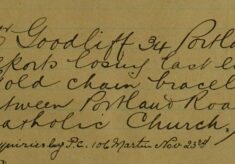 Mr Goodliff 34 Portlan
eports losing last e
old chain bracel
etween Portland Roa
atholic Church.
nquiries by P.C. 106 Martin Nov 23rd